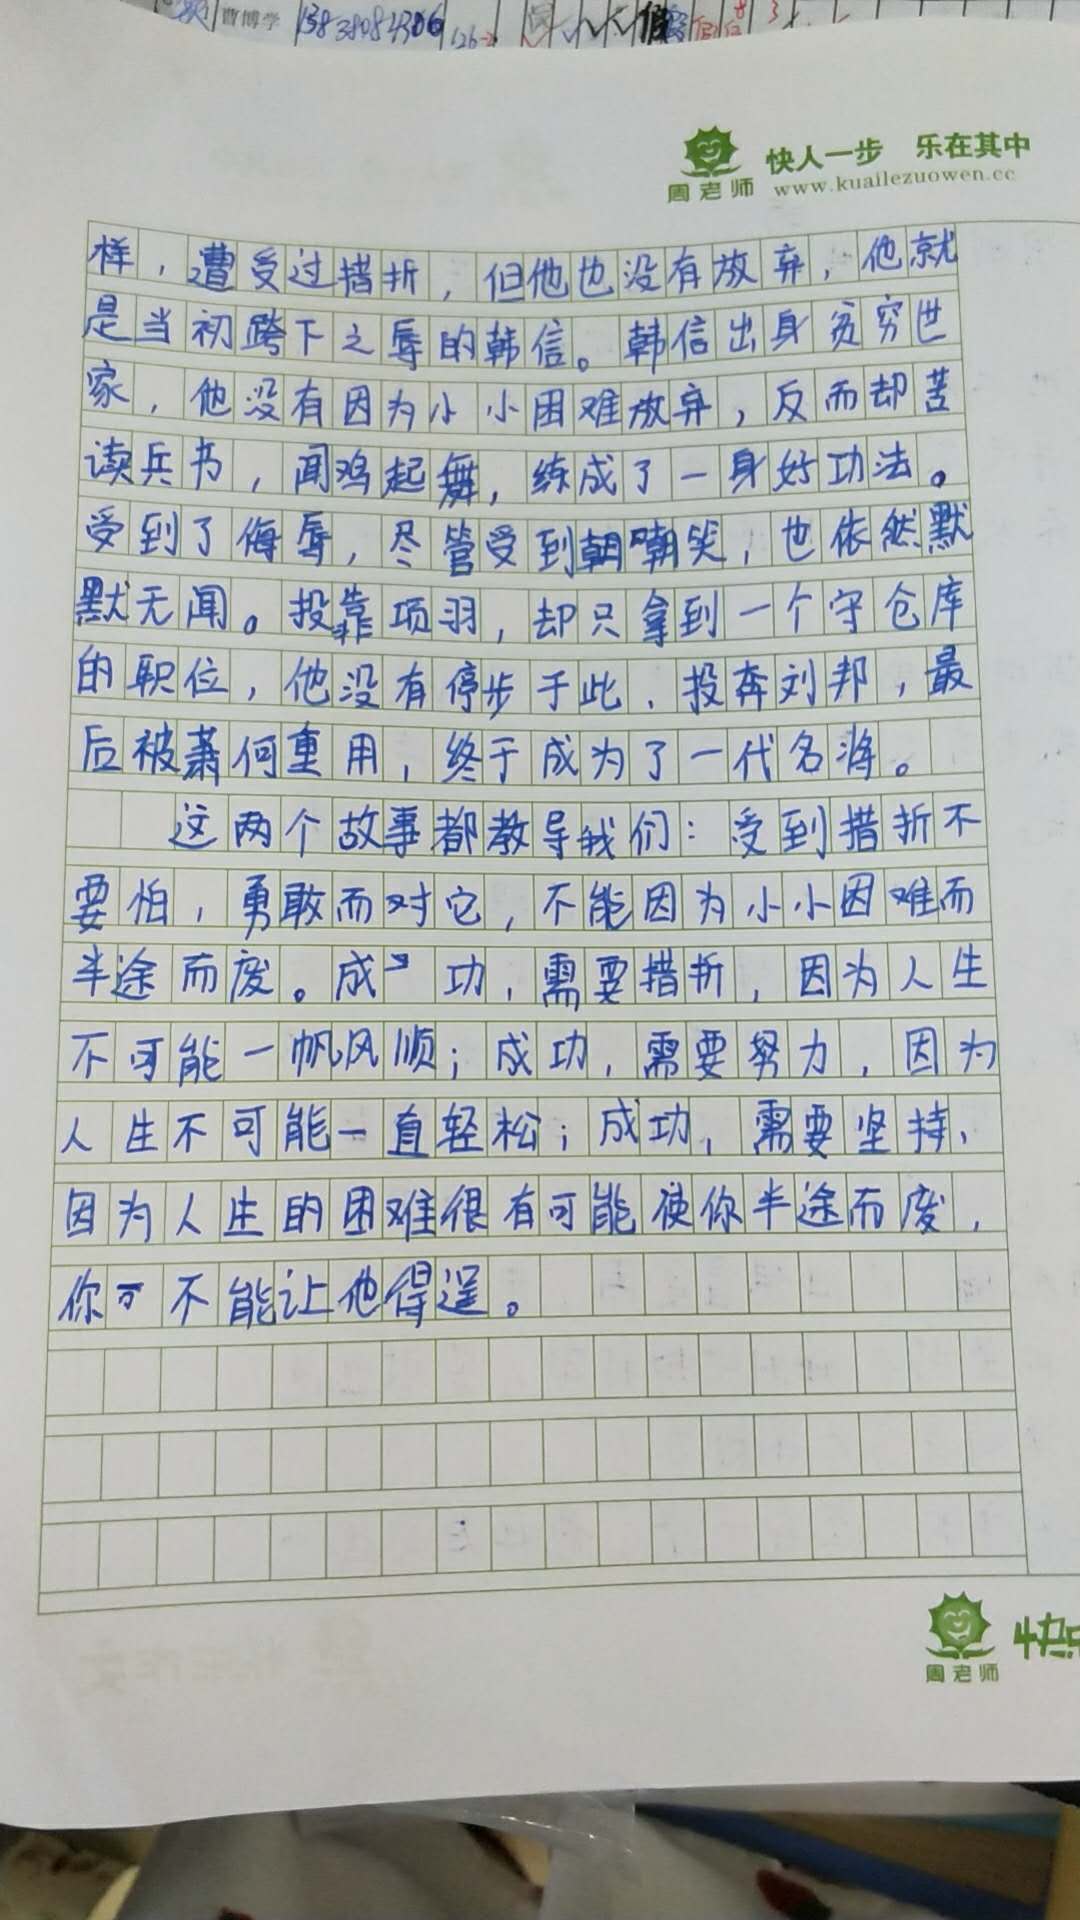 曹博学 13838084306 126-2
快人一步 乐在其中
周老师 www.kuailezuowen.cc
样，遭受过措折，但他也没有放弃，他就
是当初跨下之辱的韩信。韩信出身贫穷世
家，他没有因为小小困难放弃，反而却苦
读兵书，闻鸡起舞，练成了一身好功法。
受到了侮辱，尽管受到嘲笑，也依然默
默无闻。投靠项羽，却只拿到一个守仓库
的职位，他没有停步于此，投奔刘邦，最
后被萧何重用，终于成为了一代名将。
这两个故事都教导我们：受到措折不
要怕，勇敢而对它，不能因为小小因难而
半途而废。成功，需要措折，因为人生
不可能一帆风顺；成功，需要努力，因为
人生不可能一直轻松；成功，需要坚持，
因为人生的困难很有可能使你半途而废，
你不能让他得逞。
周老师